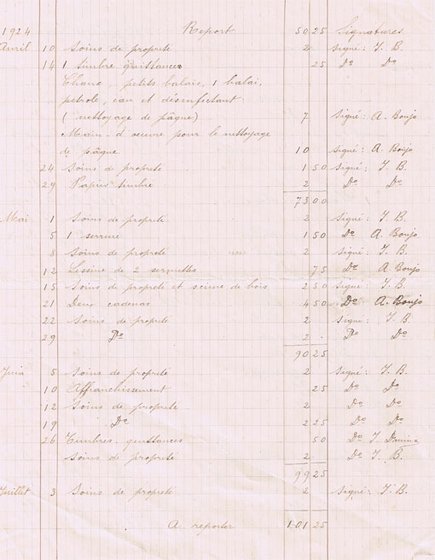 1924 Report 50 25 Signatures
Avril 10 Soins de propreté 2 Signé: T. B.
14 1 timbre quittances 25 Do Do
Chaux, petits balais, 1 balai,
pétrole, eau et désinfectant
(nettoyage de pâque) 7 Signé: A. Boujo
Main-d'oeuvre pour le nettoyage
de pâque 10 Signé: A. Boujo
24 Soins de propreté 1 50 Signé: T. B.
29 Papier timbre 2 Do Do
73 00
Mai 1 Soins de propreté 2 Signé: T. B
5 1 serrure 1 50 Do A. Boujo
8 Soins de propreté 2 Signé: T. B
12 Lessive de 2 serviettes 75 Do A Boujo
15 Soins de propreté et sciure de bois 2 50 Signé: T. B.
21 Deux cadenas 4 50 Do A. Boujo
22 Soins de propreté 2 Signé: T. B.
29 Do 2 Do Do
90 25
Juin 5 Soins de propreté 2 Signé: T. B.
10 Affranchissement 25 Do Do
12 Soins de propreté 2 Do Do
19 Do 2 25 Do Do
26 Timbres, quittances 50 Do T.
Soins de propreté 2 Do T. B.
99 25
Juillet 3 Soins de propreté 2 Signé: T. B.
A reporter 101 25